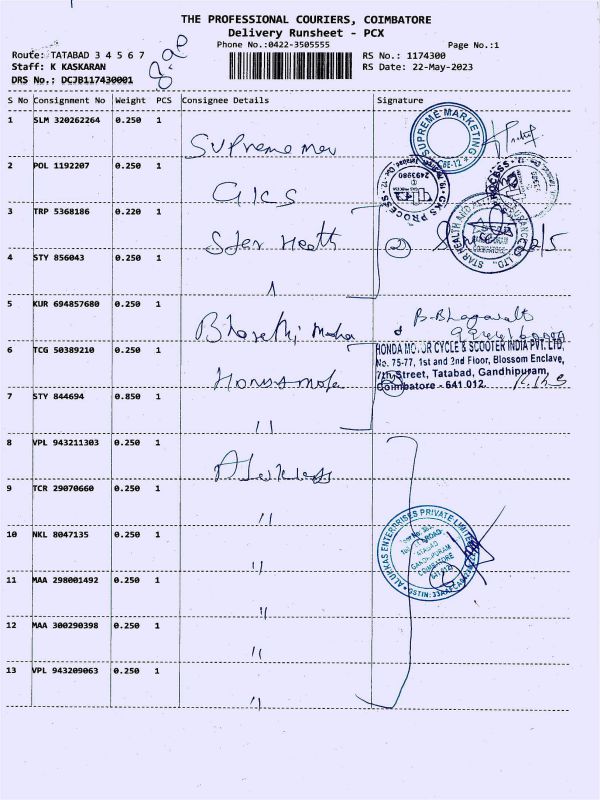 THE PROFESSIONAL COURIERS, COIMBATORE
Delivery Runsheet - PCX
Phone No.:0422-3505555
Page No.:1
Route: TATABAD 3 4 5 6 7
Staff: K KASKARAN
DRS No.: DCJB117430001
RS No.: 1174300
RS Date: 22-May-2023
S No Consignment No Weight PCS Consignee Details Signature
1 SLM 320262264 0.250 1
SUPREME MARKETING
CBE-12
2 POL 1192207 0.250 1
GKS PROCESS
2493980
3 TRP 5368186 0.220 1
Star Health
2
STAR HEALTH AND
LTD.
4 STY 856043 0.250 1
5 KUR 694857680 0.250 1
B-Bhagavalt
6 TCG 50389210 0.250 1
HONDA MOTOR CYCLE & SCOOTER INDIA PVT. LTD,
No. 75-77, 1st and 2nd Floor, Blossom Enclave,
7th Street, Tatabad, Gandhipuram,
Coimbatore - 641 012.
7 STY 844694 0.850 1
"
8 VPL 943211303 0.250 1
9 TCR 29070660 0.250 1
"
10 NKL 8047135 0.250 1
"
ALUKKAS ENTERPRISES PRIVATE LIMITED
TATABAD
GANDHIPURAM
COIMBATORE
641 012
11 MAA 298001492 0.250 1
"
12 MAA 300290398 0.250 1
"
13 VPL 943209063 0.250 1
"